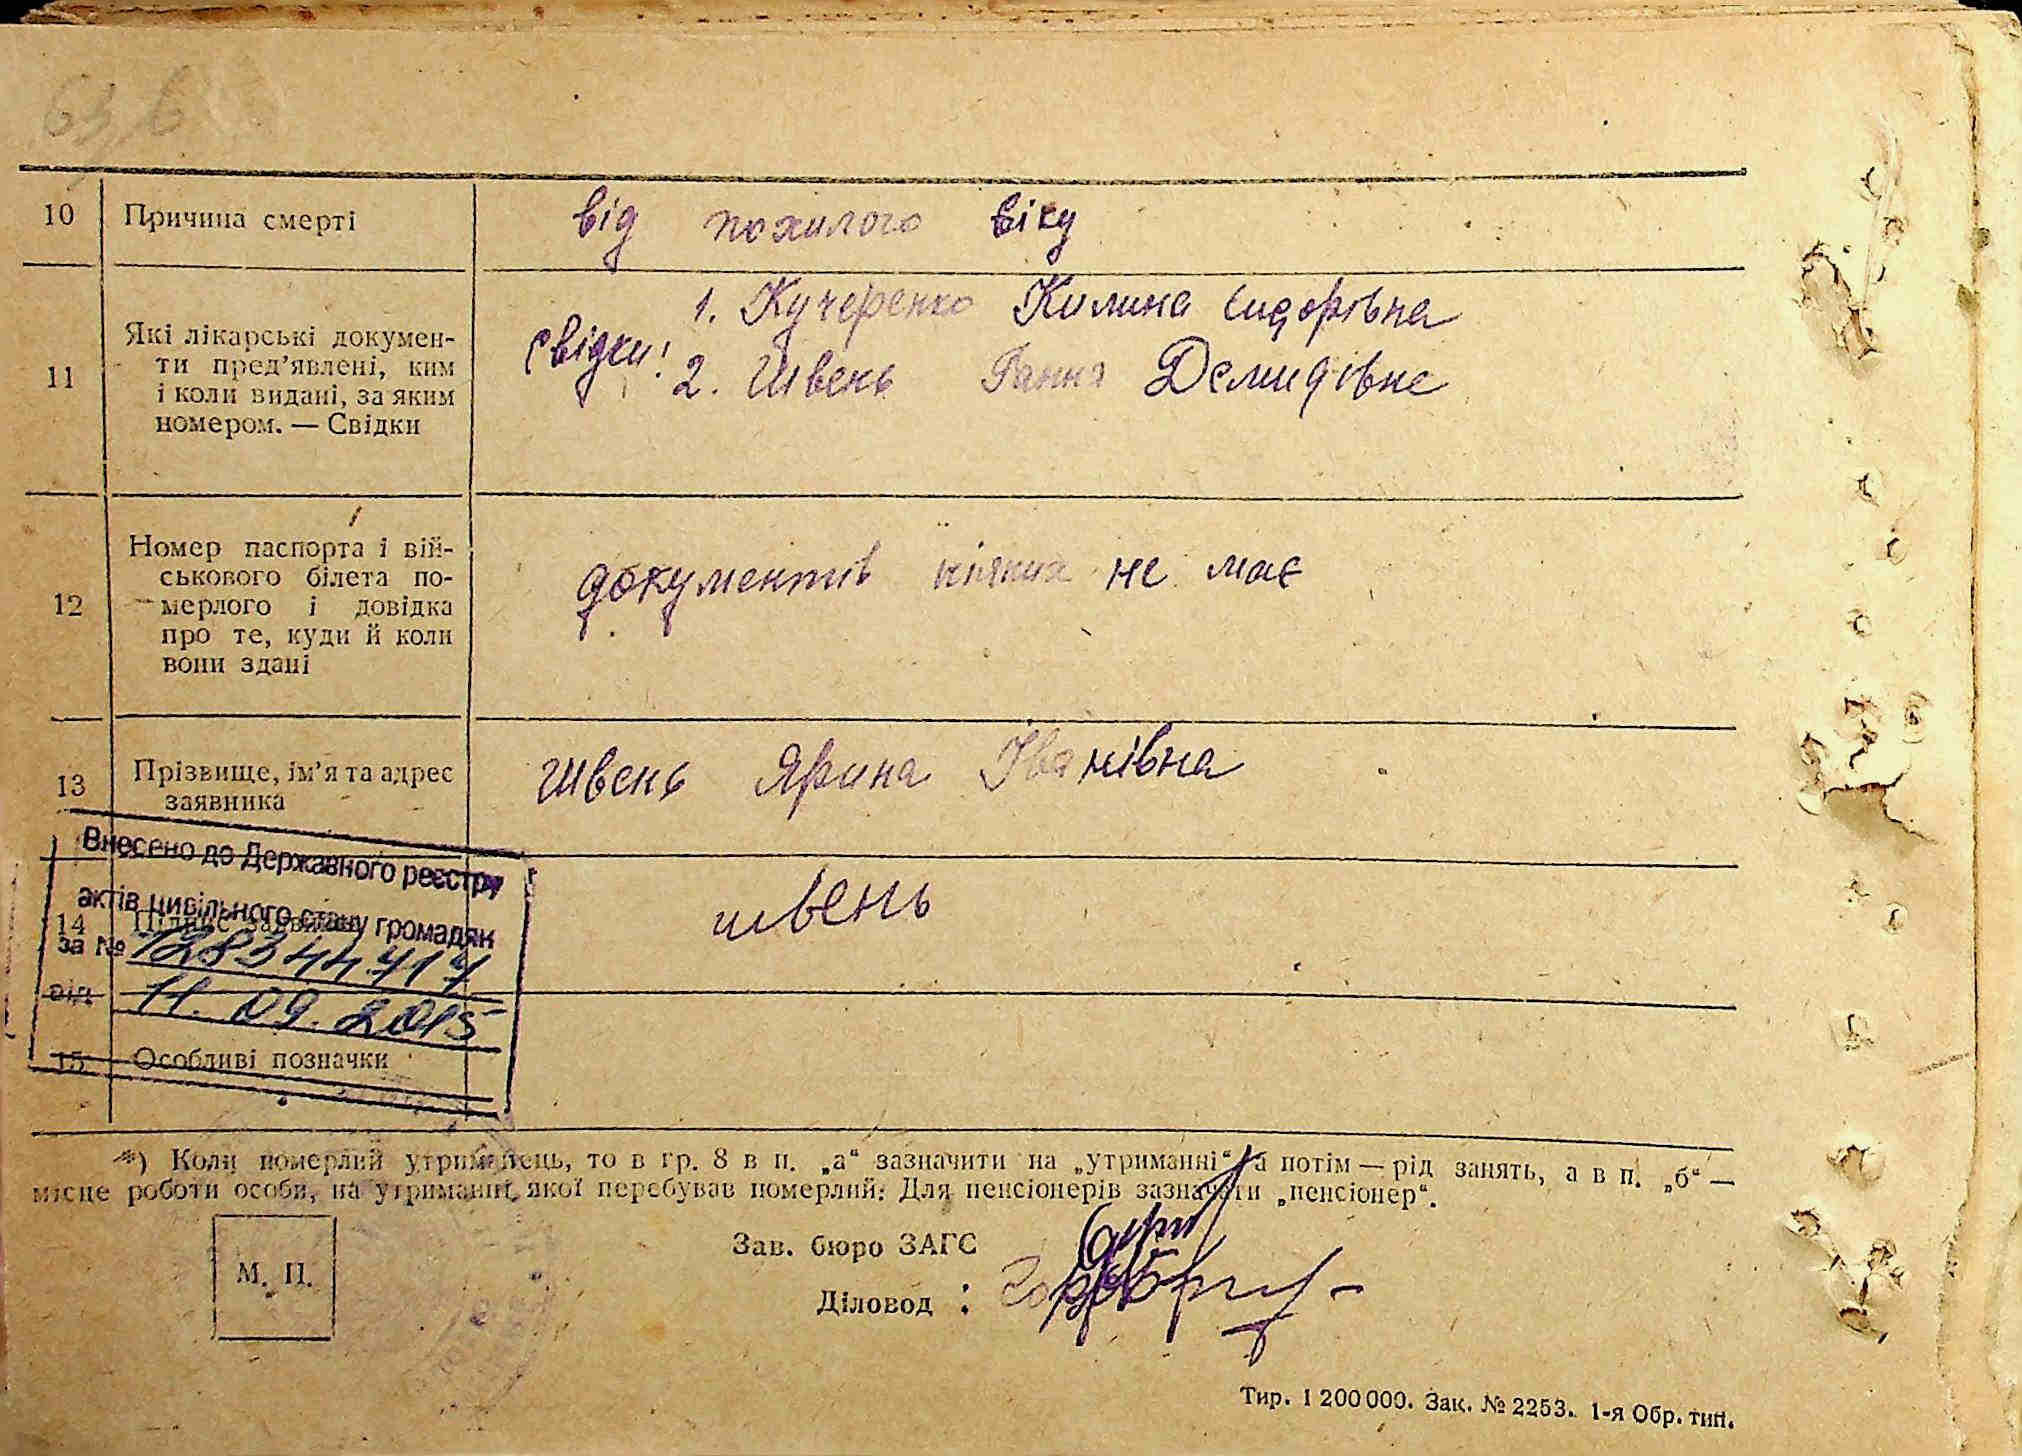 10 Причина смерті від похилого віку
11 Які лікарські докумен-
ти пред’явлені, ким
і коли видані, за яким
номером. — Свідки
Свідки: 1. Кучеренко Килина Сидорівна
2. Швень Ганна Демидівна
12 Номер паспорта і вій-
ськового білета по-
мерлого і довідка
про те, куди й коли
вони здані
документів ніяких не має
13 Прізвище, ім’я та адрес
заявника
Швень Ярина Іванівна
Внесено до Державного реєстру
актів цивільного стану громадян
14 Підпис заявника швень
за №
від 11.09.2015
15 Особливі позначки
*) Коли померлий утриманець, то в гр. 8 в п. „а“ зазначити на „утриманні“ а потім — рід занять, а в п. „б“ —
місце роботи особи, на утриманні якої перебував померлий. Для пенсіонерів зазначати „пенсіонер“.
М. П.
Зав. бюро ЗАГС
Діловод :
Тир. 1 200 000. Зак. № 2253. 1-я Обр. тип.